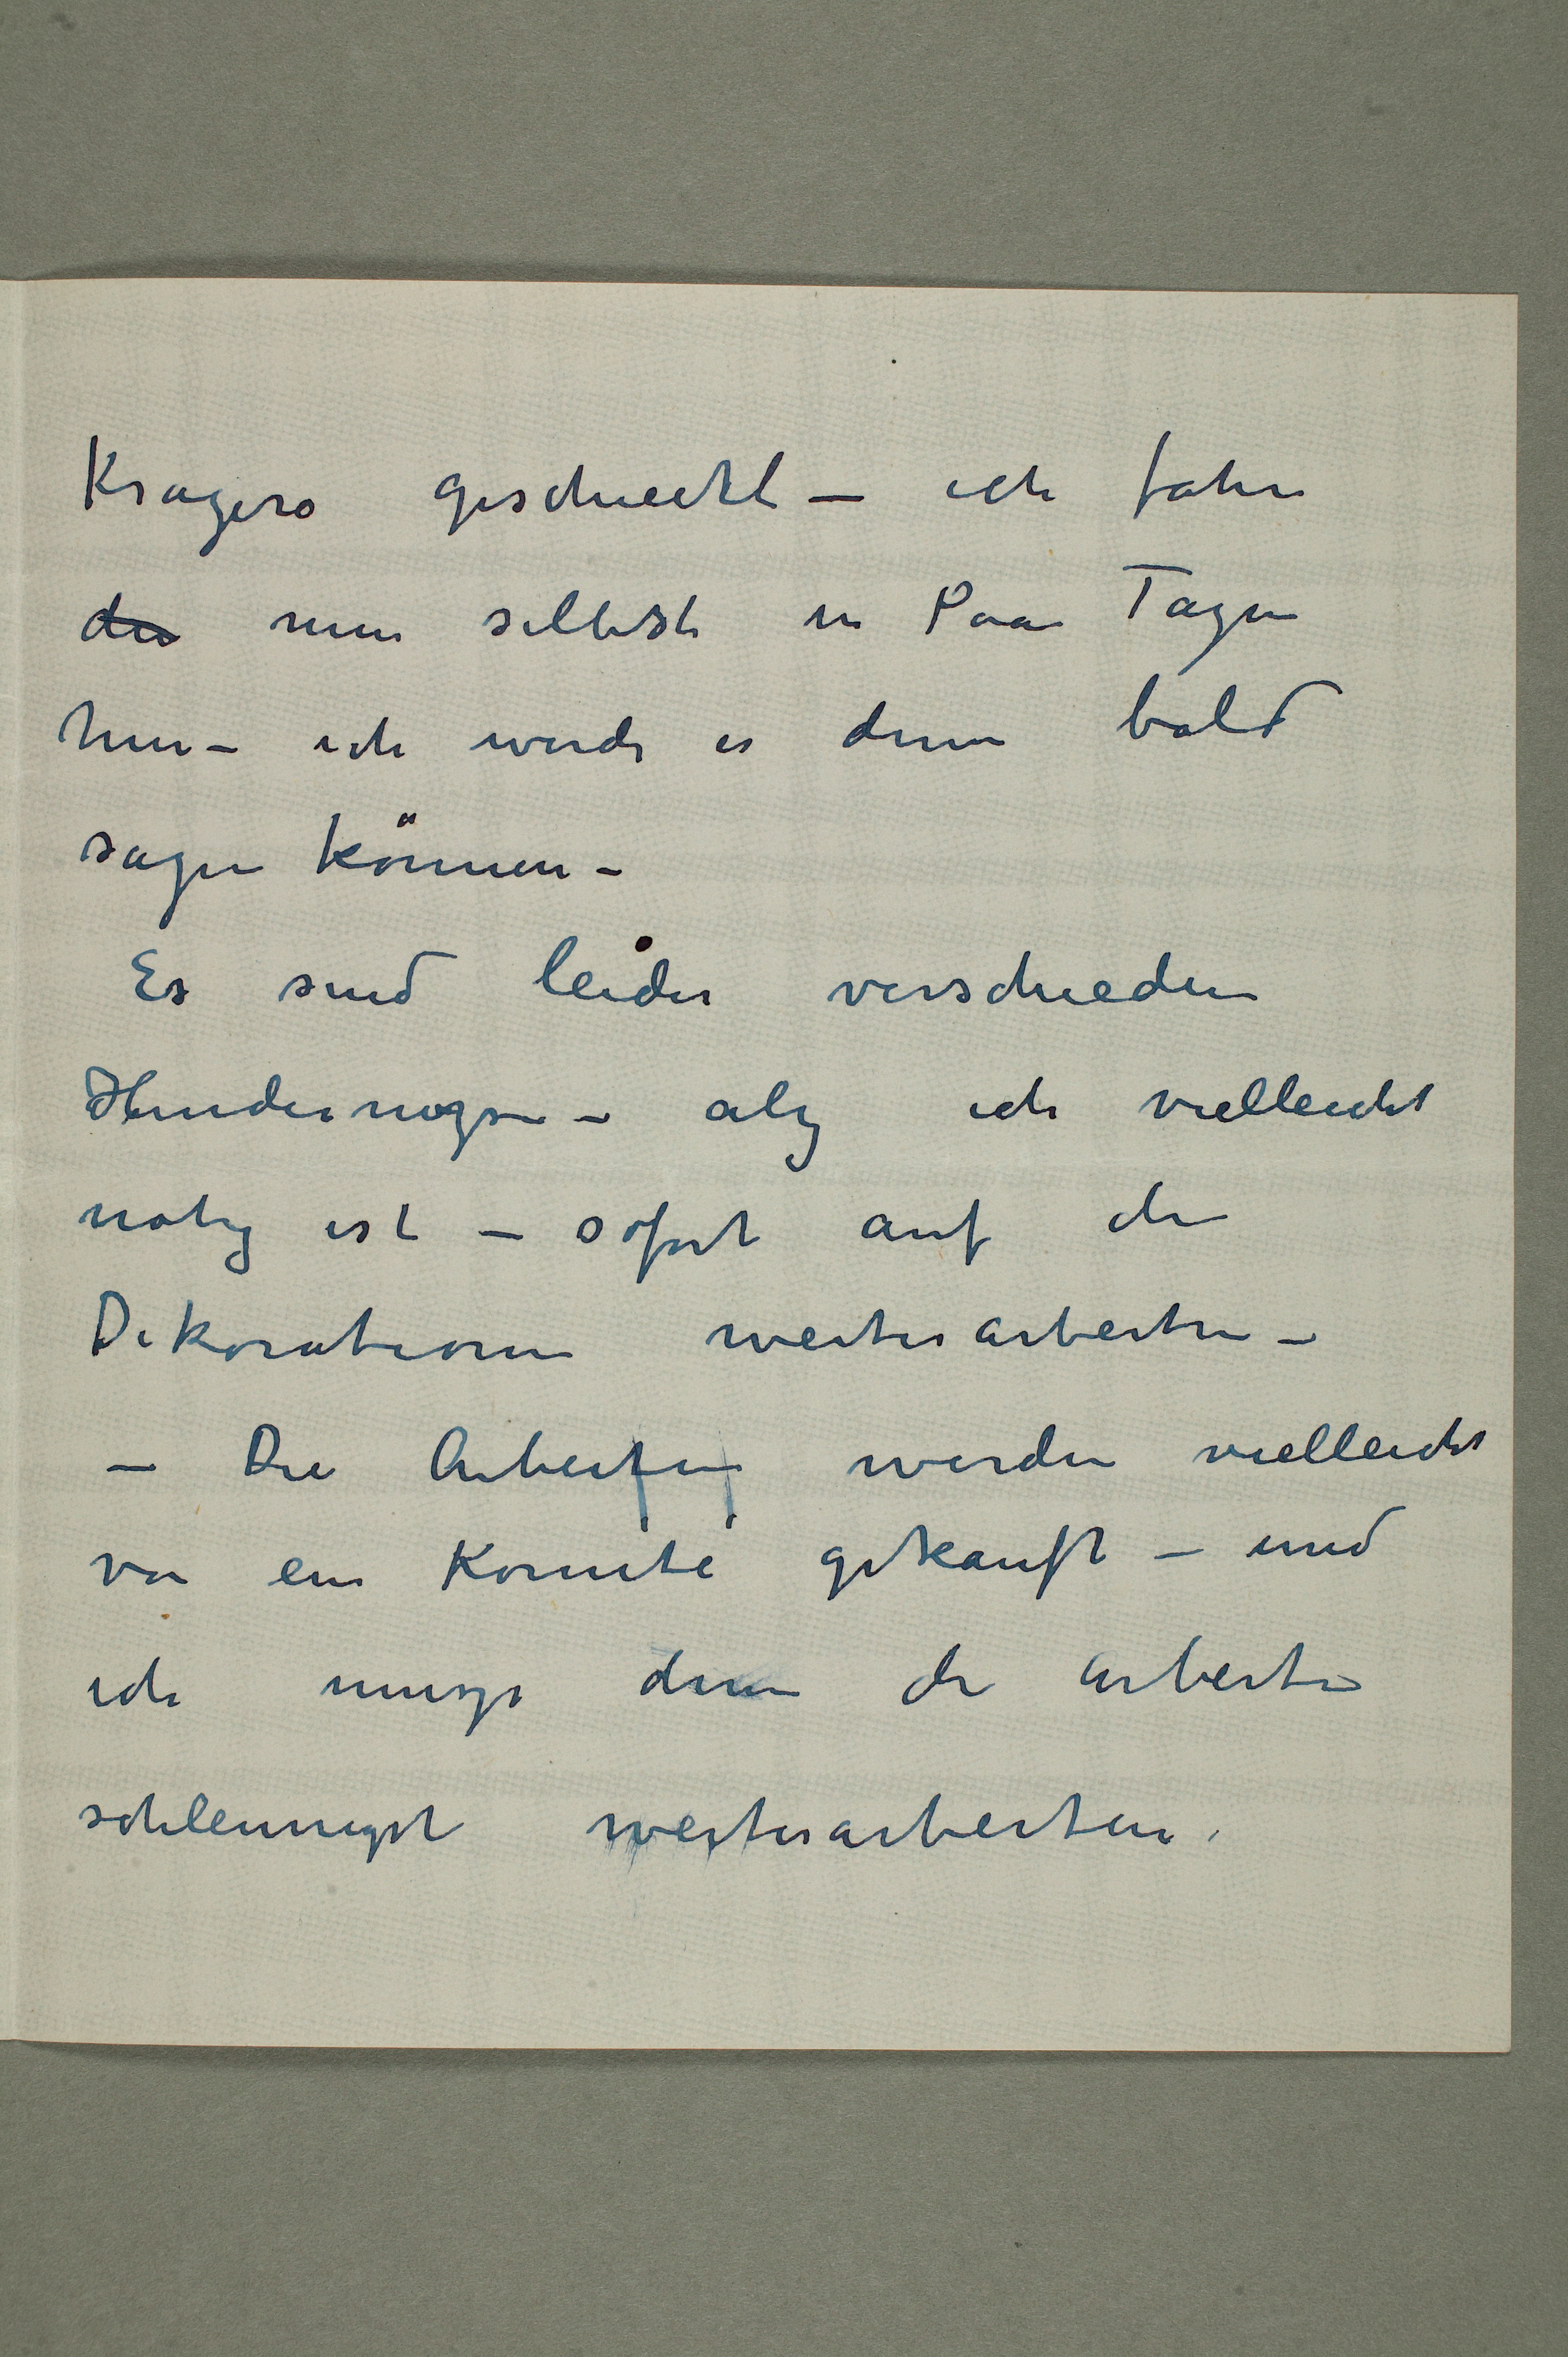 Kragero geschieckt – ich fahre
die nun selbst in Paar Tagen
hin – ich werde es denn bald
sagen können –
Es sind leider verschieden
Hinderniz – alz ich vielleicht
notig ist – sofort auf die
Dekorationen weiterarbeiten –
– Die Arbeiten werden vielleicht
von ein Komité gekauft – und
ich musz denn die arbeiten
schleunigst weiterarbeiten.